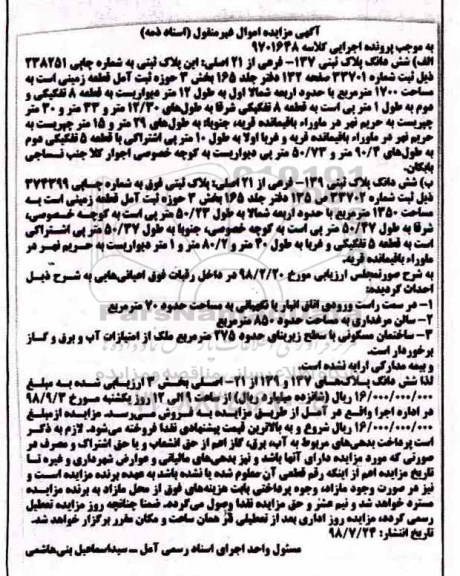 آگهی مزایده اموال غیرمنقول (اسناد ذمه)
به موجب پرونده اجرایی کلاسه ۹۷۰۱۶۴۸
الف) شش دانگ پلاک ثبتی ۱۳۷- فرعی از ۲۱ اصلی: این پلاک ثبتی به شماره چاپی ۲۳۸۲۵۱
ذیل ثبت شماره ۳۳۷۰۱ صفحه ۱۳۲ دفتر جلد ۱۶۵ بخش ۳ حوزه ثبت آمل قطعه زمینی است به
مساحت ۱۷۰۰ مترمربع با حدود اربعه شمالا اول به طول ۱۲ متر دیواریست به قطعه ۸ تفکیکی و
دوم به طول ۱ متر پی است به قطعه ۸ تفکیکی شرقا به طول‌های ۱۲/۳۰ متر و ۳۳ متر و ۳۰ متر
چپریست به حریم نهر در ماوراء باقیمانده قریه، جنوبا: به طول‌های ۲۹ متر و ۱۵ متر چپریست به
حریم نهر در ماوراء باقیمانده قریه و غربا اولا به طول ۱۰ متر پی اشتراکی با قطعه ۵ تفکیکی دوم
به طول‌های ۹۰/۳ متر و ۵۰/۷۳ متر پی دیواریست به کوچه خصوصی اجوار کلا جنب نساجی
بابکان.
ب) شش دانگ پلاک ثبتی ۱۳۹- فرعی از ۲۱ اصلی: پلاک ثبتی فوق به شماره چاپی ۳۷۴۳۹۹
ذیل ثبت شماره ۳۳۷۰۲ ص ۱۳۵ دفتر جلد ۱۶۵ بخش ۳ حوزه ثبت آمل قطعه زمینی است به
مساحت ۱۲۵۰ مترمربع با حدود اربعه شمالا به طول ۵۰/۲۳ متر پی است به کوچه خصوصی،
شرقا به طول ۵۰/۴۷ متر پی است به کوچه خصوصی، جنوبا به طول ۵۰/۳۷ متر پی اشتراکی
است به قطعه ۵ تفکیکی و غربا به طول ۴۰ متر و ۸۰/۲ متر و ۱ متر دیواریست به حریم نهر در
ماوراء باقیمانده قریه.
به شرح صورتمجلس ارزیابی مورخ ۹۸/۲/۲۰ در داخل رقبات فوق اعیانی‌هایی به شرح ذیل
احداث گردیده:
۱- در سمت راست ورودی اتاق انبار یا نگهبانی به مساحت حدود ۷۰ مترمربع
۲- سالن مرغداری به مساحت حدود ۸۵۰ مترمربع
۳- ساختمان مسکونی با سطح زیربنای حدود ۲۷۵ مترمربع ملک از امتیازات آب و برق و گاز
برخوردار است.
و بیمه مدارکی ارایه نشده است.
لذا شش دانگ پلاک‌های ۱۳۷ و ۱۳۹ از ۲۱- اصلی بخش ۳ ارزیابی شده به مبلغ
۱۶/۰۰۰/۰۰۰/۰۰۰ ریال (شانزده میلیارد ریال) از ساعت ۹ الی ۱۲ روز یکشنبه مورخ ۹۸/۹/۳
در اداره اجرا واقع در آمل از طریق مزایده به فروش می‌رسد. مزایده ازمبلغ
۱۶/۰۰۰/۰۰۰/۰۰۰ ریال شروع و به بالاترین قیمت پیشنهادی نقدا فروخته می‌شود. لازم به ذکر
است پرداخت بدهی‌های مربوط به آب، برق، گاز اعم از حق انشعاب و یا حق اشتراک و مصرف در
صورتی که مورد مزایده دارای آنها باشد و نیز بدهی‌های مالیاتی و عوارض شهرداری و غیره تا
تاریخ مزایده اعم از اینکه رقم قطعی آن معلوم شده یا نشده باشد به عهده برنده مزایده است و
نیز در صورت وجود مازاد، وجوه پرداختی بابت هزینه‌های فوق از محل مازاد به برنده مزایده
مسترد خواهد شد و نیم عشر و حق مزایده نقدا وصول می‌گردد. ضمنا چنانچه روز مزایده تعطیل
رسمی گردد، مزایده روز اداری بعد از تعطیلی در همان ساعت و مکان مقرر برگزار خواهد شد.
تاریخ انتشار: ۹۸/۷/۲۴
مسئول واحد اجرای اسناد رسمی آمل ــ سیداسماعیل بنی‌هاشمی